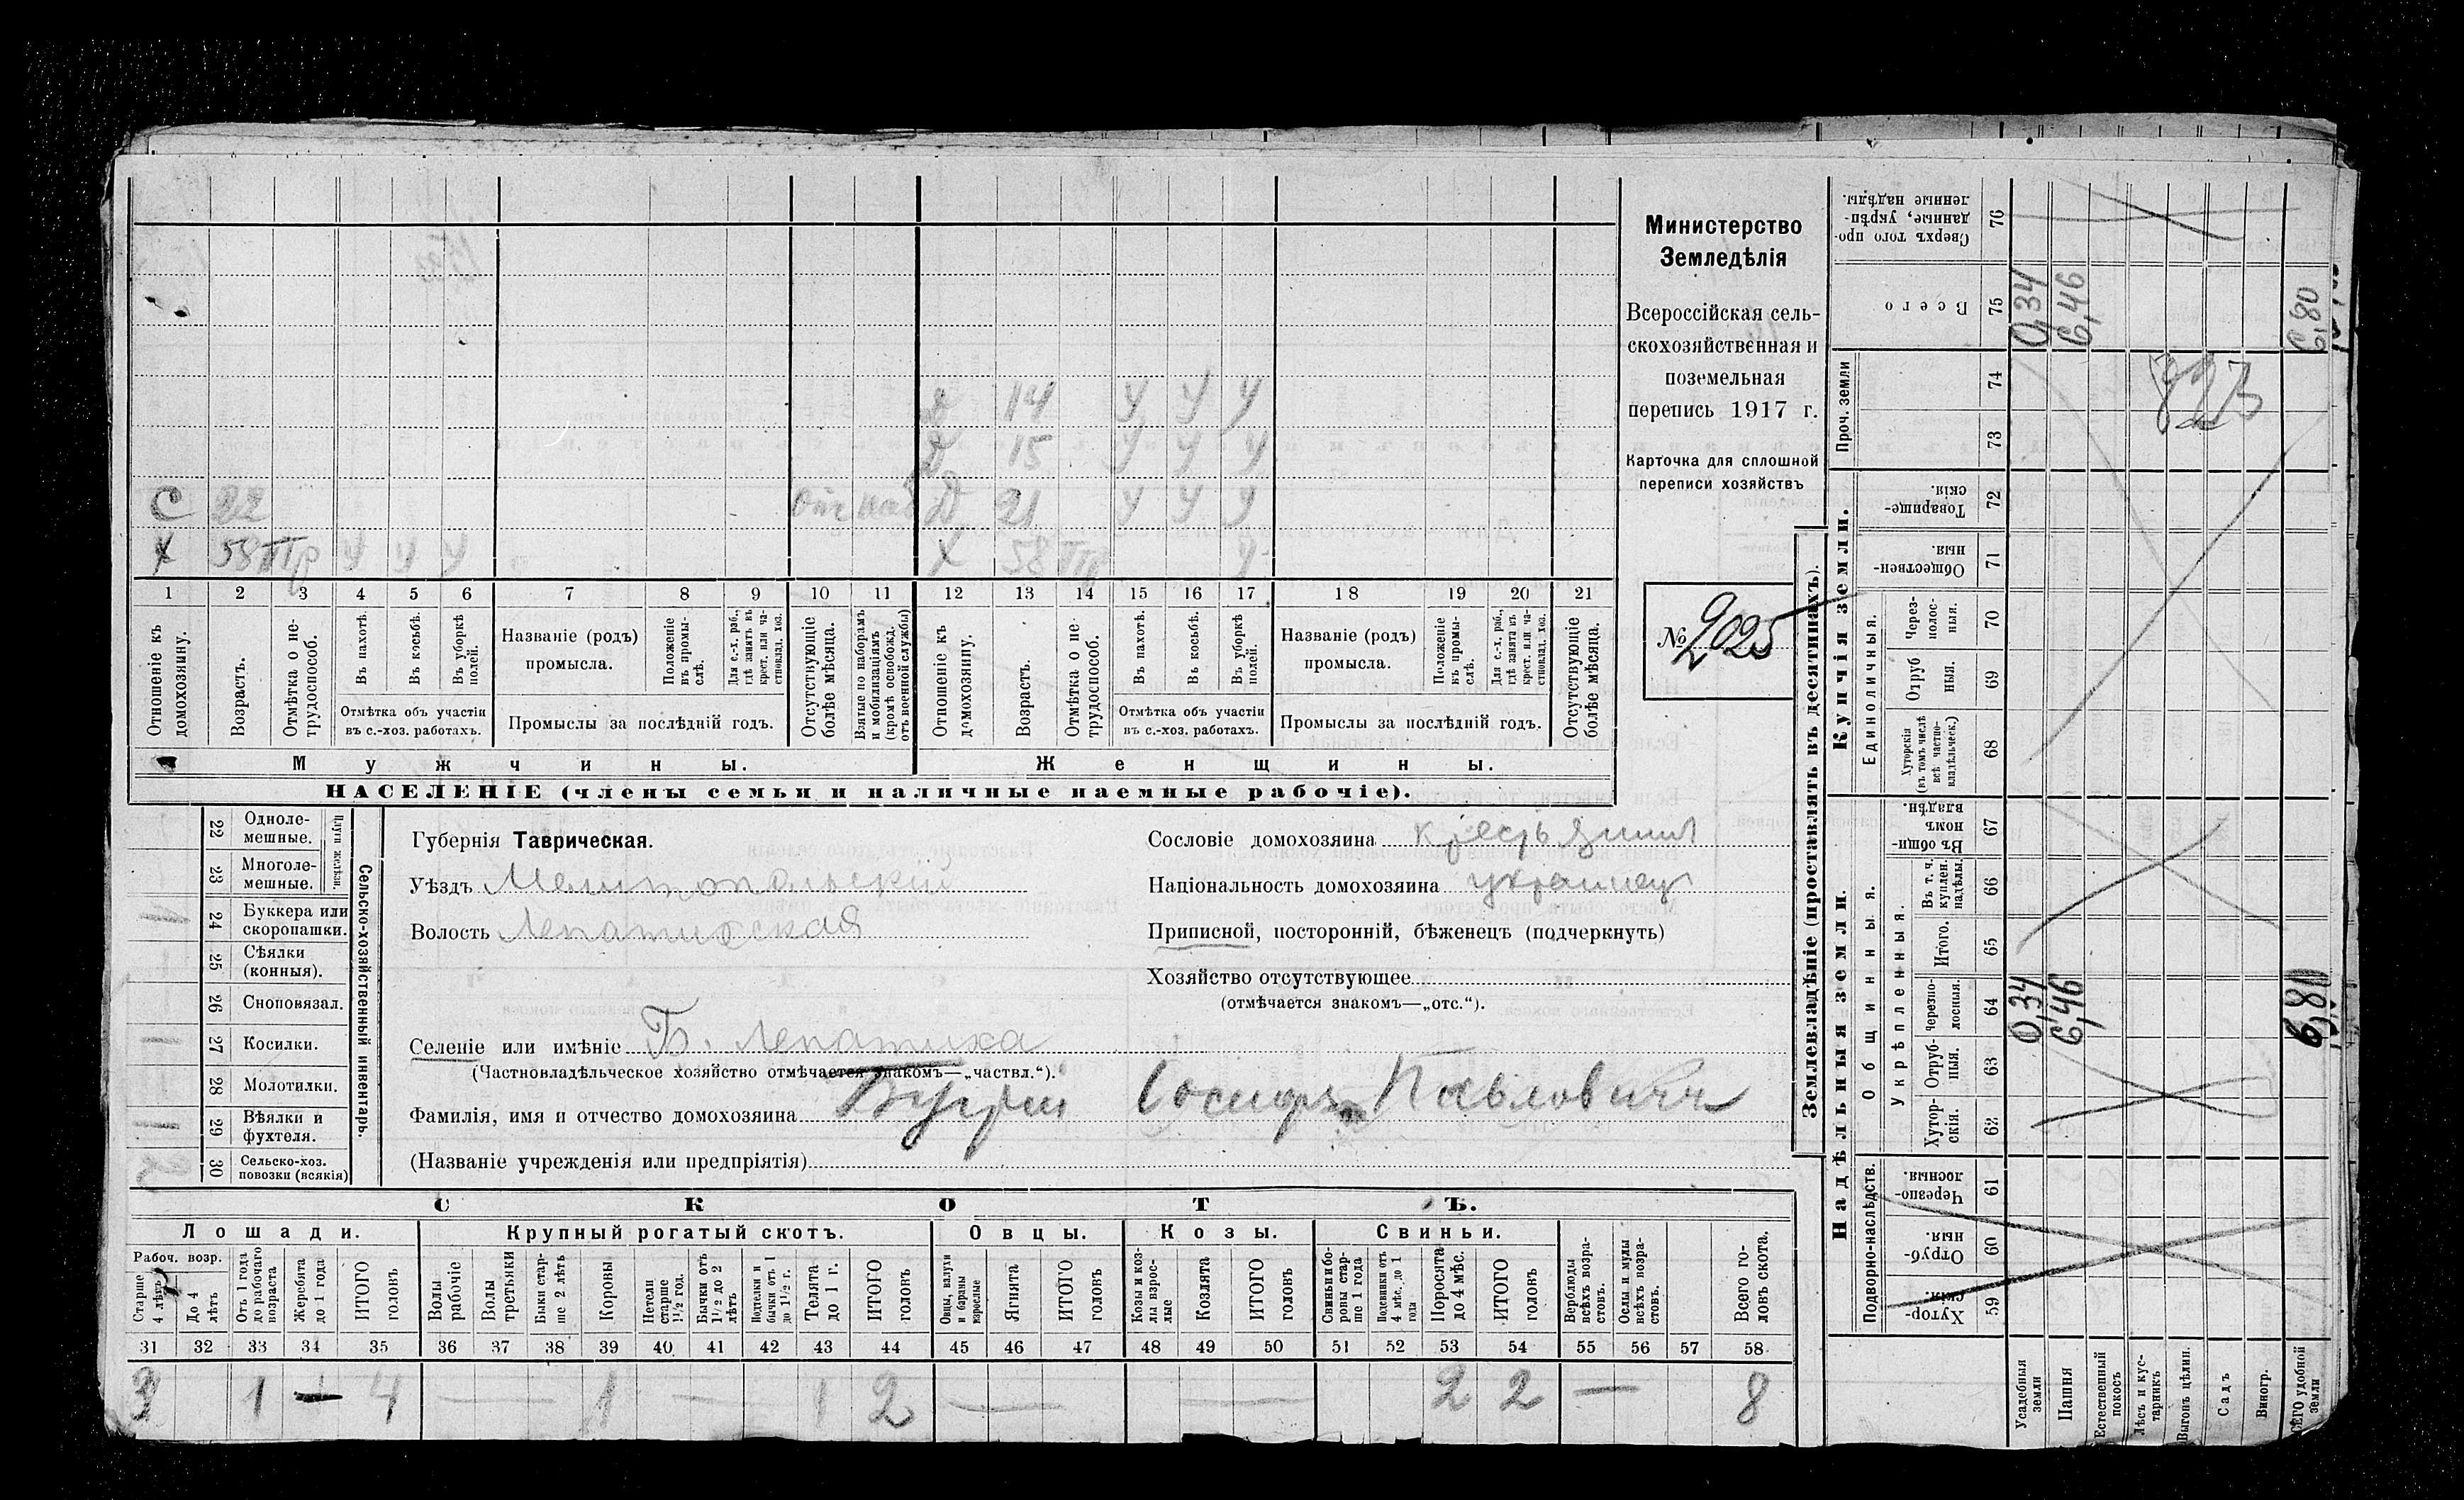 Д 14 У У У
Д 15 У У У
С 22 Д 21 У У У
Х 58 Пр У У У Х 58 Пр У
1 2 3 4 5 6 7 8 9 10 11 12 13 14 15 16 17 18 19 20 21
Отношеніе къ домохозяину.
Возрастъ.
Отмѣтка о не-
трудоспособ.
Въ пахотѣ.
Въ косьбѣ.
Въ уборкѣ
полей.
Отмѣтка объ участіи
въ с.-хоз. работахъ.
Названіе (родъ)
промысла.
Положеніе
въ промы-
слѣ.
Для с.-х. раб.,
гдѣ занятъ въ
крест. или ча-
стновлад. хоз.
Промыслы за послѣдній годъ.
Отсутствующіе
болѣе мѣсяца.
Взятые по наборамъ
и мобилизаціямъ
(кромѣ освобожд.
отъ военной службы)
Отношеніе къ
домохозяину.
Возрастъ.
Отмѣтка о не-
трудоспособ.
Въ пахотѣ.
Въ косьбѣ.
Въ уборкѣ
полей.
Отмѣтка объ участіи
въ с.-хоз. работахъ.
Названіе (родъ)
промысла.
Положеніе
въ промы-
слѣ.
Для с.-х. раб.,
гдѣ занята въ
крест. или ча-
стновлад. хоз.
Промыслы за послѣдній годъ.
Отсутствующіе
болѣе мѣсяца.
Мужчины.
Женщины.
НАСЕЛЕНІЕ (члены семьи и наличные наемные рабочіе).
Министерство
Земледѣлія
Всероссійская сель-
скохозяйственная и
поземельная
перепись 1917 г.
Карточка для сплошной
переписи хозяйствъ
№ 2025
22 Одноле-
мешные.
23 Многоле-
мешные.
Плуги желѣзн.
24 Буккера или
скоропашки.
25 Сѣялки
(конныя).
26 Сноповязал.
27 Косилки. 1
28 Молотилки.
29 Вѣялки и
фухтеля. 1
30 Сельско-хоз.
повозки (всякія)
Сельско-хозяйственный инвентарь.
Губернія Таврическая.
Уѣздъ Мелитопольскій
Волость Лепатихская
Селеніе или имѣніе Б. Лепатиха
(Частновладѣльческое хозяйство отмѣчается знакомъ—„частвл.“).
Фамилія, имя и отчество домохозяина Іосифъ Павловичъ
(Названіе учрежденія или предпріятія)
Сословіе домохозяина крестьянинъ
Національность домохозяина украинец
Приписной, посторонній, бѣженецъ (подчеркнуть)
Хозяйство отсутствующее
(отмѣчается знакомъ—„отс.“).
СКОТЪ.
Лошади. Крупный рогатый скотъ. Овцы. Козы. Свиньи.
Рабоч. возр.
Старше
4 лѣтъ
До 4
лѣтъ
Отъ 1 года
до рабочаго
возраста
Жеребята
до 1 года
ИТОГО
головъ
Волы
рабочіе
Волы
третьяки
Быки стар-
ше 2 лѣтъ
Коровы
Нетели
старше
1½ год.
Бычки отъ
1½ до 2
лѣтъ
Подтелки и
бычки отъ 1
до 1½ г.
Телята
до 1 г.
ИТОГО
головъ
Овцы, валухи
и бараны
взрослые
Ягнята
ИТОГО
головъ
Козы и коз-
лы взрос-
лые
Козлята
ИТОГО
головъ
Свиньи и бо-
ровы стар-
ше 1 года
Подсвинки отъ
4 мѣс. до 1
года
Поросята
до 4 мѣс.
ИТОГО
головъ
Верблюды
всѣхъ возра-
стовъ.
Ослы и мулы
всѣхъ возра-
стовъ.
Всего го-
ловъ скота.
31 32 33 34 35 36 37 38 39 40 41 42 43 44 45 46 47 48 49 50 51 52 53 54 55 56 57 58
3 1 — 4 — 1 — 1 2 — — 2 2 — 8
Землевладѣніе (проставлять въ десятинахъ).
Купчія земли.
Надѣльныя земли.
Сверхъ того про-
данные, укрѣп-
ленные надѣлы. 76
Всего 75 0,34 6,46 6,80
Проч. земли 74 73
823
Единоличныя.
Товарище-
скія. 72
Обществен-
ныя. 71
Через-
полос-
ныя. 70
Отруб
ныя. 69
Хуторскія
(въ томъ числѣ
всѣ частно-
владѣльческ.) 68
Общинныя.
Укрѣпленныя.
Въ общин-
номъ
владѣн. 67
Въ т. ч.
куплен.
надѣлы. 66
Итого. 65
Черезпо-
лосныя. 64 0,34 6,46 6,80
Отруб-
ныя. 63
Хутор-
скія. 62
Подворно-наслѣдств.
Черезпо-
лосныя 61
Отруб-
ныя 60
Хутор-
скія. 59
Усадебныя
земли
Пашня
Естественный
покосъ
Лѣсъ и кус-
тарникъ
Выгонъ цѣлин.
Садъ
Виногр.
ВСЕГО удобной
земли